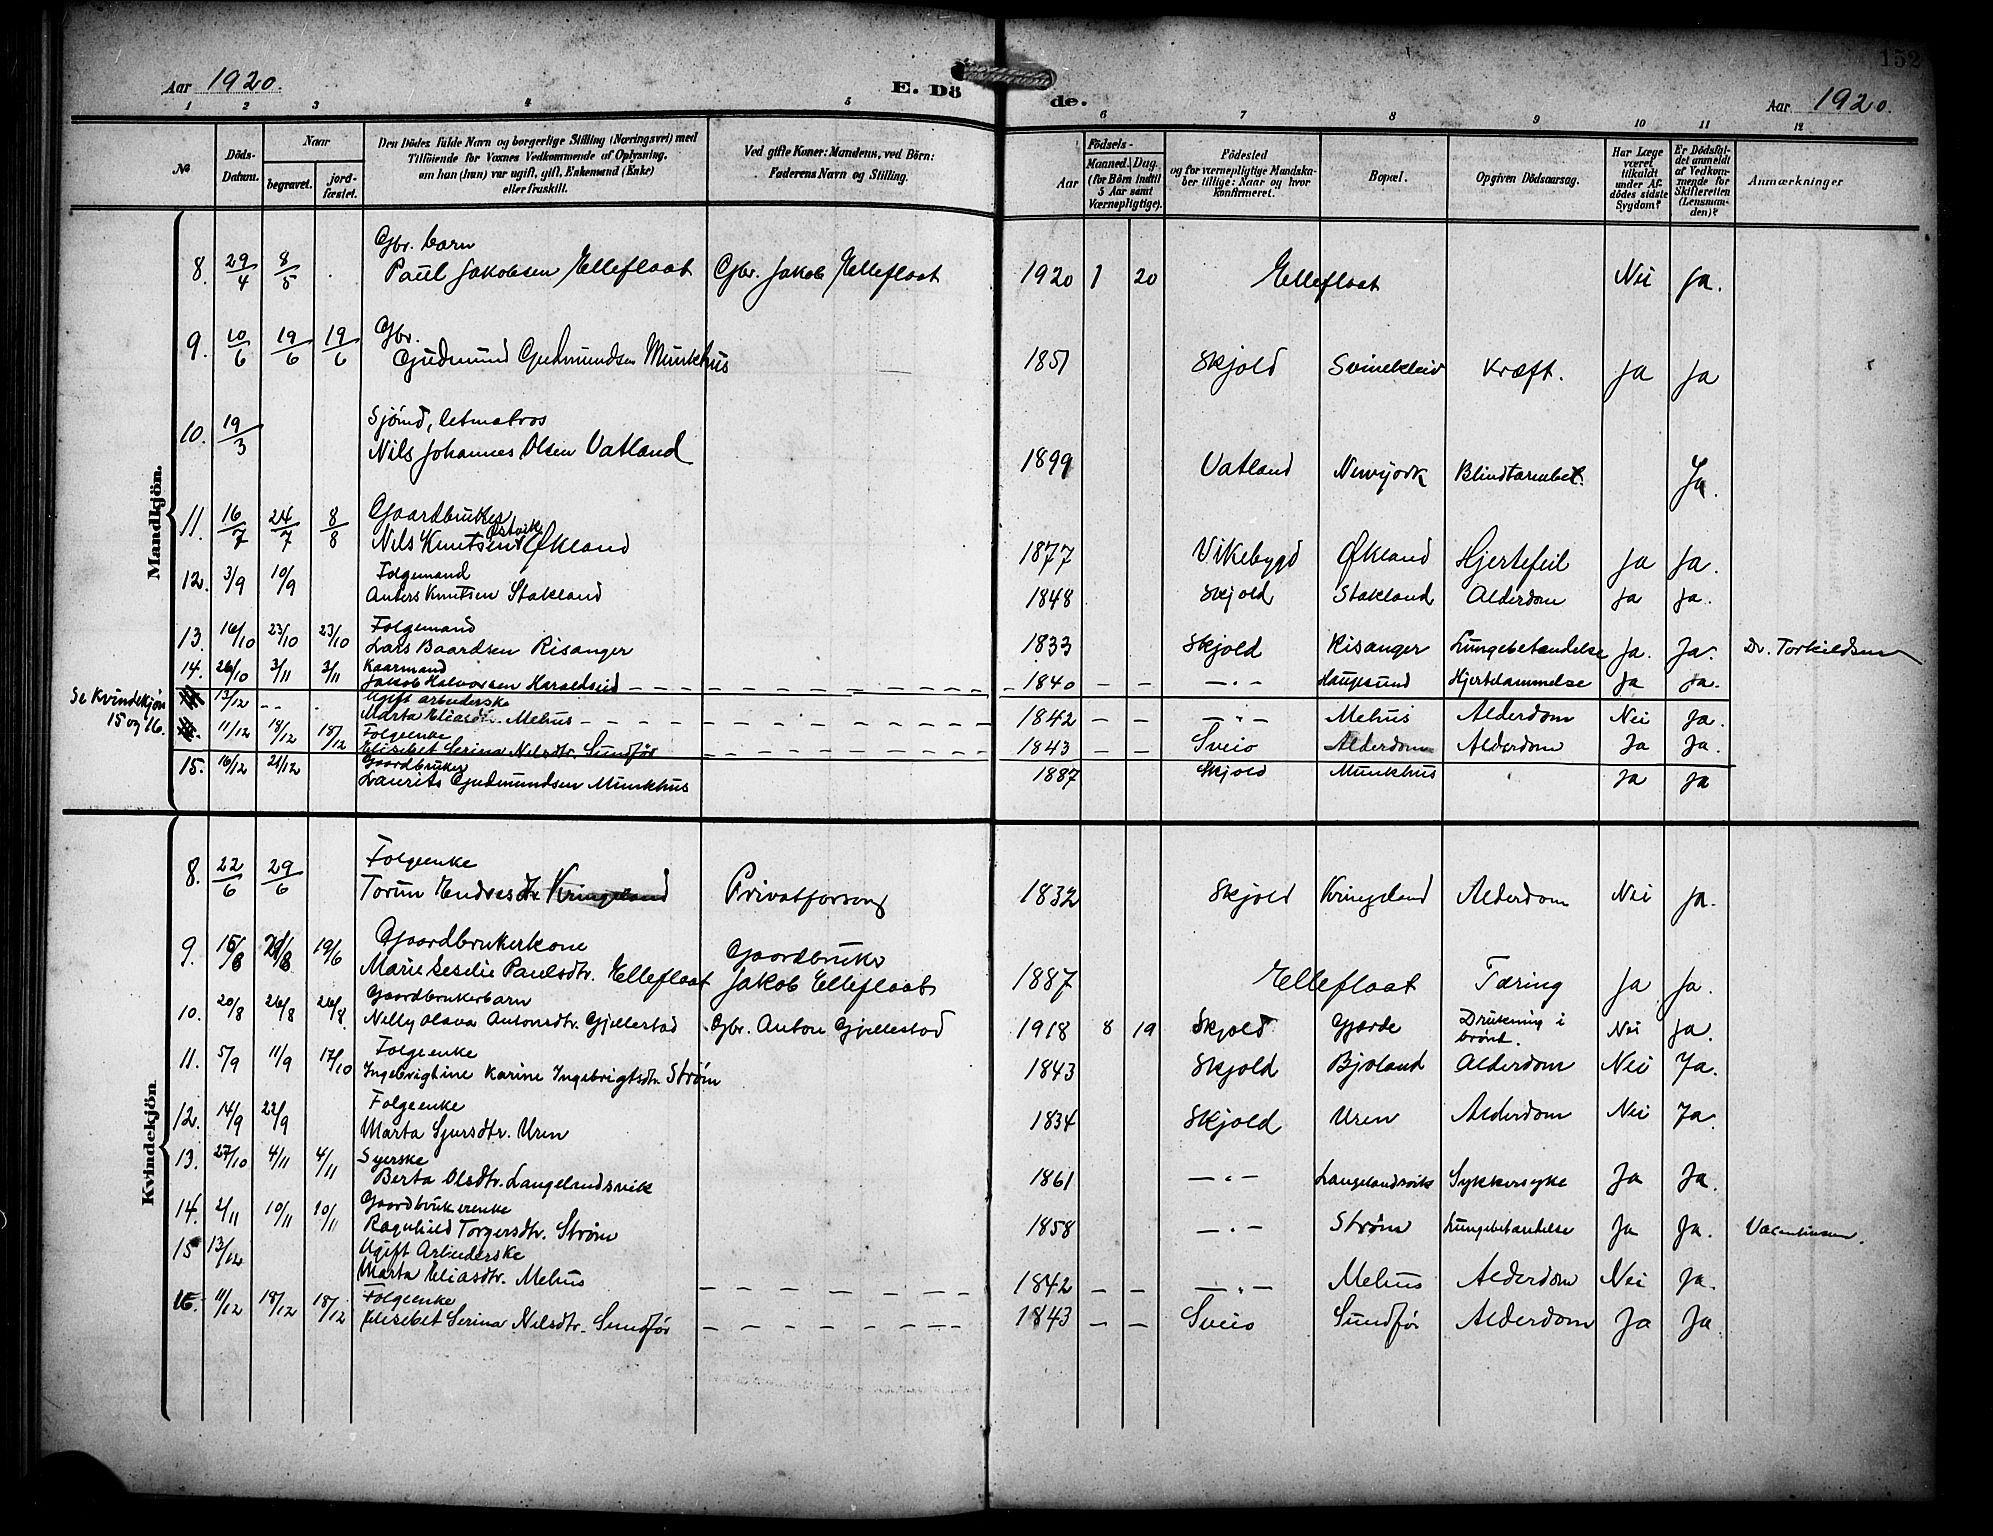 152
Aar 1920.
E. Dö de.
Aar 1920.
1 2 3 4 5 6 7 8 9 10 11 12
№
Döds-Datum.
Naar
begravet.
jord-fæstet.
Den Dödes fulde Navn og borgerlige Stilling (Næringsvei) med
Tilföiende for Voxnes Vedkommende af Oplysning,
om han (hun) var ugift, gift, Enkemand (Enke)
eller fraskilt.
Ved gifte Koner: Mandens, ved Börn:
Faderens Navn og Stilling.
Födsels-
Aar
Maaned. Dag.
(for Börn indtil
5 Aar samt
Værnepligtige).
Födested
og for værnepligtige Mandska-
ber tillige: Naar og hvor
konfirmeret.
Bopæl.
Opgiven Dödsaarsag.
Har Læge
været
tilkaldt
under Af-
dödes sidste
Sygdom?
Er Dödsfal-
det anmeldt
af Vedkom-
mende for
Skifteretten
(Lensman-
den)?
Anmærkninger
Mandkjön.
Gbr. barn
8. 29/4 8/5 . Paul Jakobsen Elleflaat Gbr. Jakob Elleflaat 1920 1 20 Elleflaat Nei Ja.
Gbr.
9. 10/6 19/6 19/6 Gudmund Gudmundsen Munkhus 1851 Skjold Svinekleiv Kræft. Ja Ja
Sjömd, letmatros
10. 19/3 Nils Johannes Olsen Vatland 1899 Vatland Newyork Blindtarmbet. Ja.
Gaardbruker
Østvik
11. 16/7 24/7 8/8 Nils Knutsen Økland 1877 Vikebygd Økland Hjertefeil Ja Ja.
Folgemand
12. 3/9 10/9 Anters Knutsen Stakland 1848 Skjold Stakland Alderdom Ja Ja.
Folgemand
13. 16/10 23/10 23/10 Lars Baardsen Risanger 1833 Skjold Risanger Lungebetændelse Ja. Ja. Dr. Torkildsen
Kaarmand
14. 26/10 3/11 3/11 Jakob Halvorsen Haraldseid – – – 1840 – – – „ – Haugesund Hjertelammelse Ja Ja.
Se Kvindekjön
15 og 16.
Ugift arbeiderske
13/12 – – . Marta Eliasdtr. Mehus – – – 1842 – – – „ – Mehus Alderdom Nei Ja.
Folgeenke
11/12 18/12 18/12 Elisebet Serina Nilsdtr. Sundför – – – 1843 – – Sveio Alderdom Alderdom Ja Ja.
Gaardbruker
15. 16/12 21/12 Laurits Gudmundsen Munkhus 1887 Skjold Munkhus Ja Ja
Kvindekjön.
Folgeenke
8. 22/6 29/6 Torun Endresdtr Kringeland Privatforsorg 1832 Skjold Kringeland Alderdom Nei Ja.
Gaardbrukerkone Gaardbruker
9. 15/8 19/6 Marie Paulsdtr. Elleflaat Jakob Elleflaat 1887 Elleflaat Tæring Ja Ja.
Gaardbrukerbarn
10. 20/8 26/8 26/8. Nelly Olava Antonsdtr. Gjellestad Gbr. Anton Gjellestad 1918 8 19 Skjold Gjærde Drukning i brönd. Nei Ja.
Folgeenke
11. 5/9 11/9 17/10 Ingebrigtine Karine Ingebrigtsdtr. Ström 1843 Skjold Bjoland Alderdom Nei Ja.
Folgeenke
12. 14/9 22/9 Marta Sjursdtr. Uren 1834 Skjold Uren Alderdom Nei Ja.
Syerske
13. 27/10 4/11 4/11 Berta Olsdtr. Langelandsvik 1861 – „ – Langelandsvik Sykkersyke Ja Ja.
Gaardbrukerenke
14. 2/11 10/11 10/11 Ragnhild Torgersdtr. Ström 1858 – „ – Ström Lungebetændelse Ja Ja. Valentinsen.
Ugift Arbeiderske
15 13/12 Marta Eliasdtr. Mehus – – – 1842 – – – „ – Mehus Alderdom Nei Ja.
Folgeenke
16. 11/12 18/12 18/12 Elisebet Serina Nilsdtr. Sundför – – – 1843 – – Sveio Sundför Alderdom Ja Ja